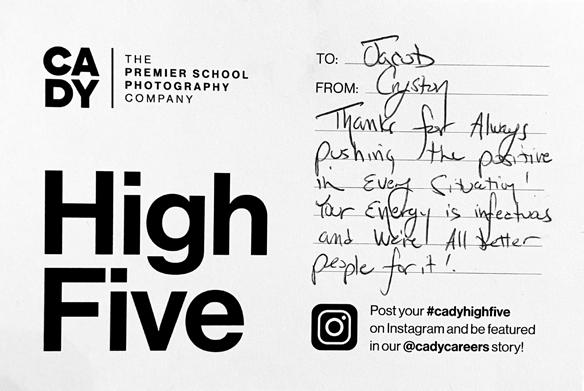 CADY
THE
PREMIER SCHOOL
PHOTOGRAPHY
COMPANY
High
Five
TO: Jacob
FROM: Crystal
Thanks for Always
pushing the positive
in Every Situation!
Your Energy is infectious
and We're All better
people for it!
Post your #cadyhighfive
on Instagram and be featured
in our @cadycareers story!